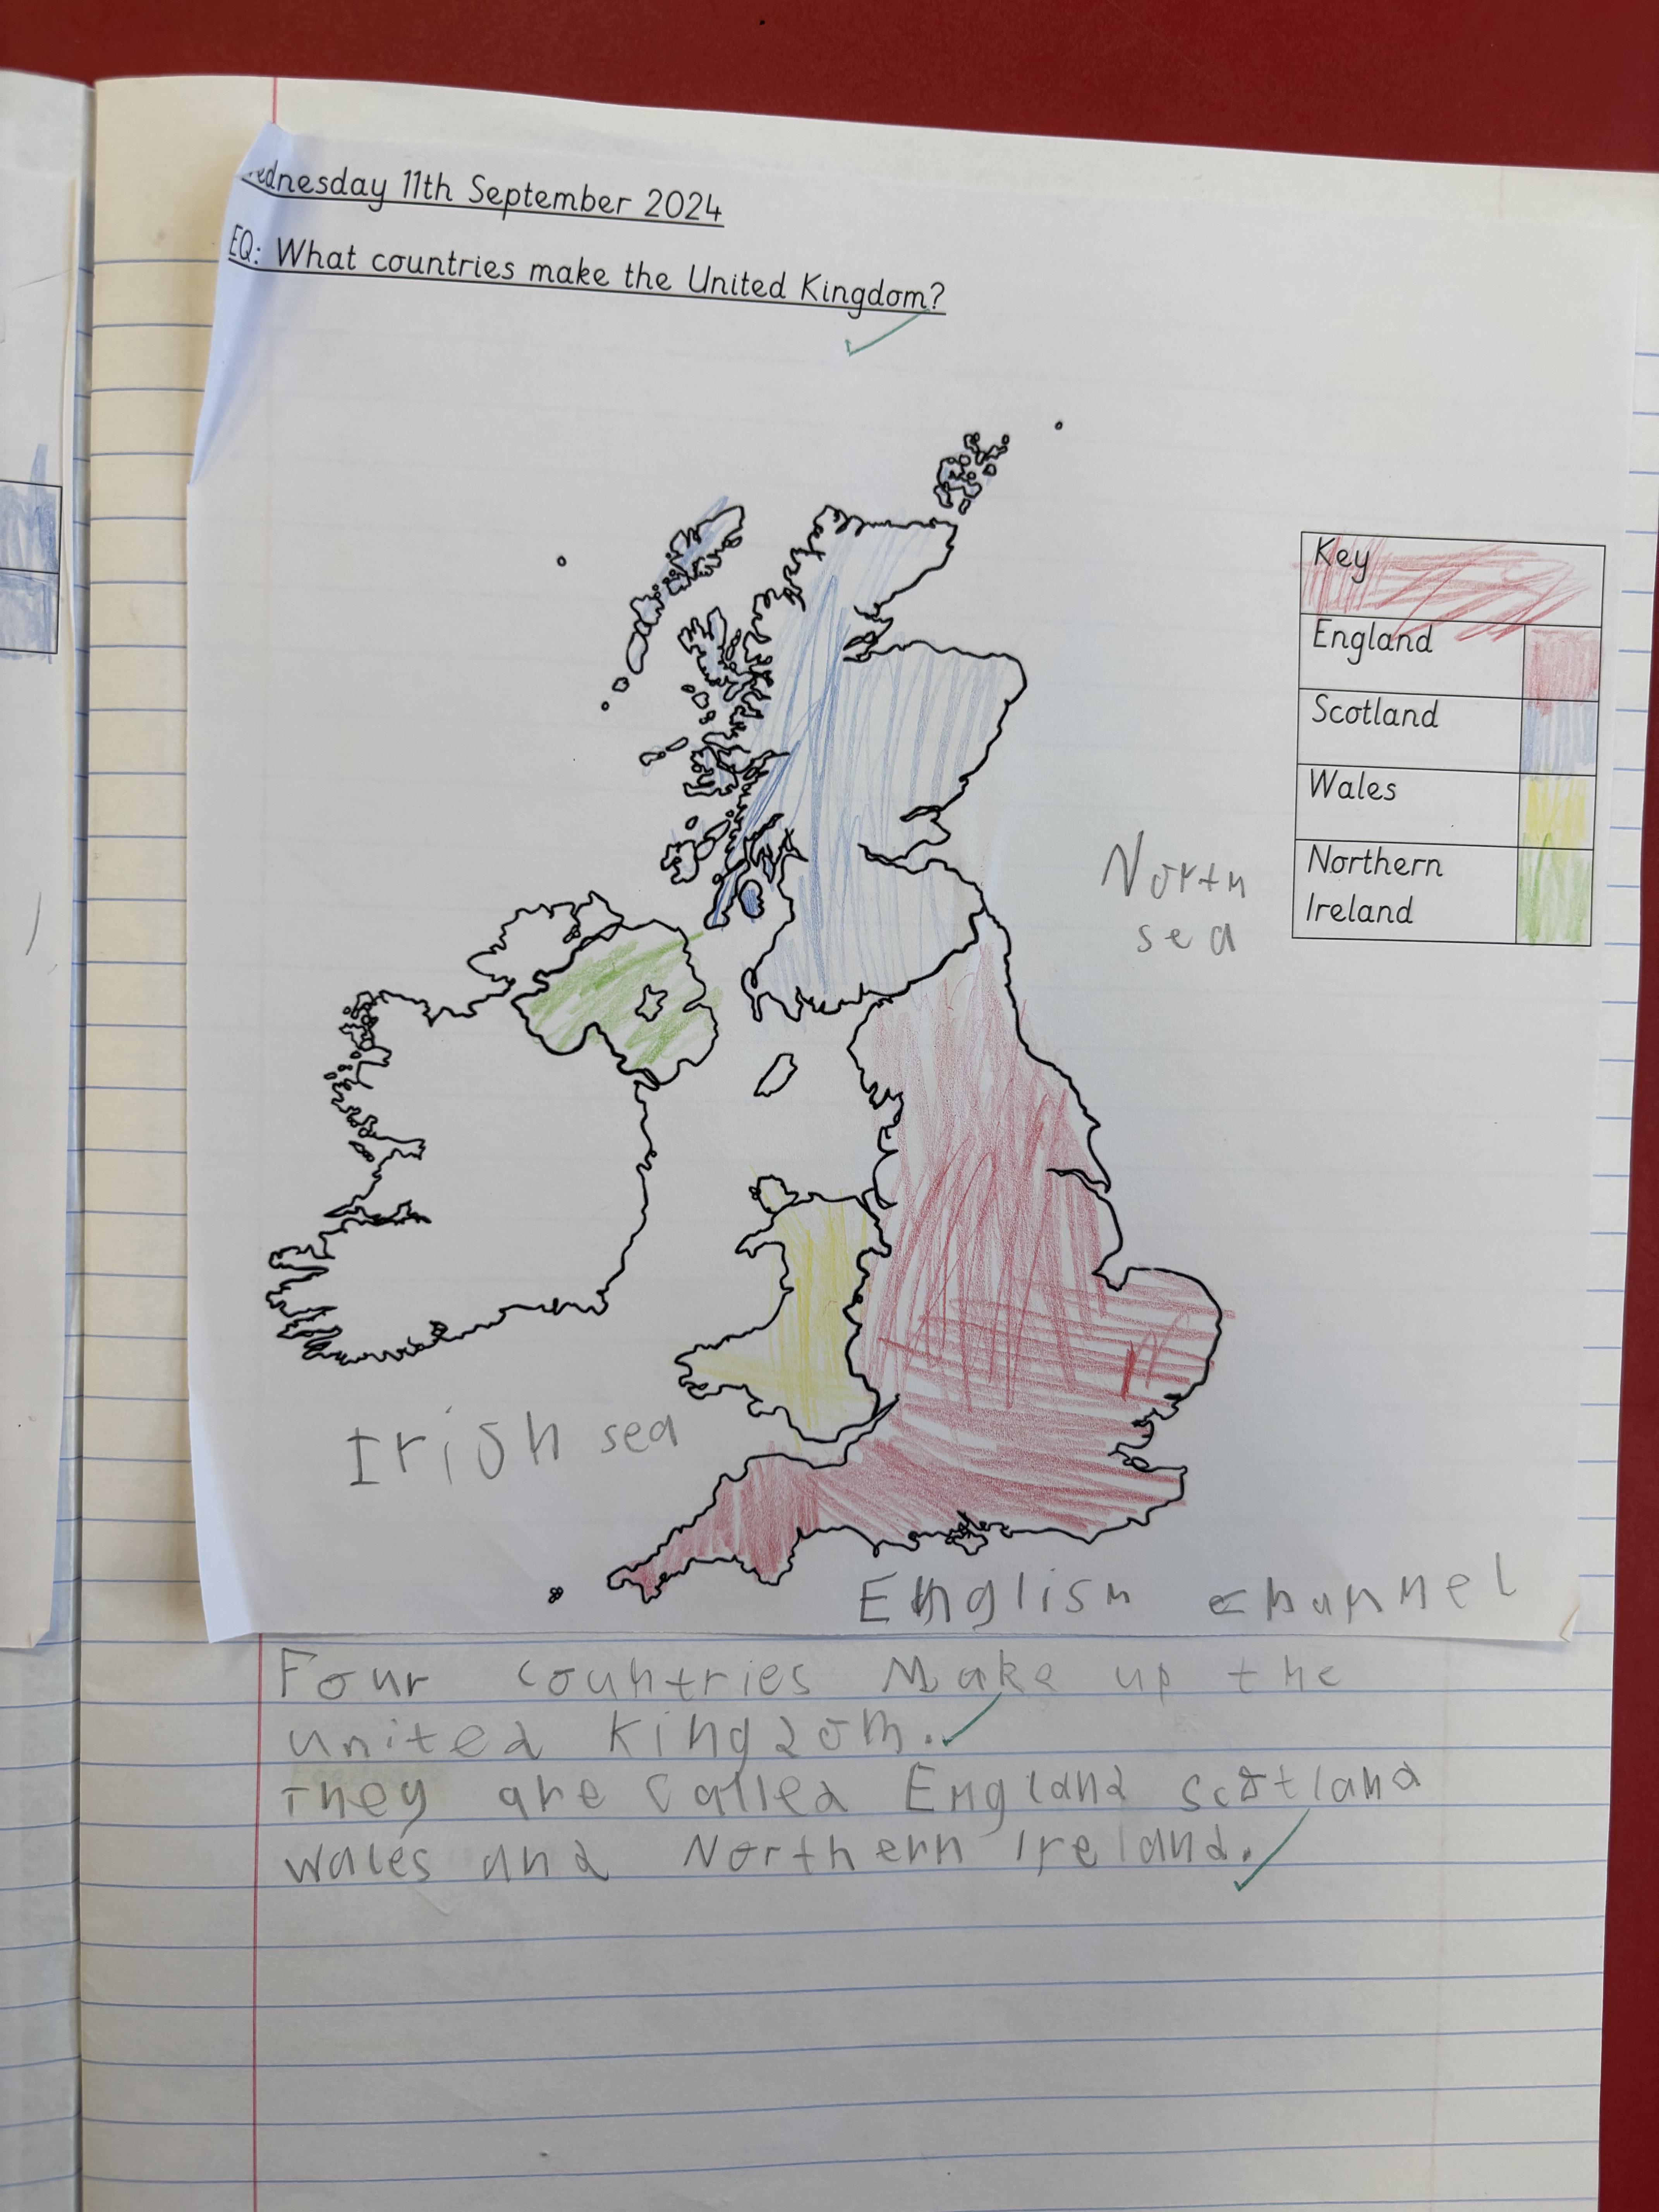 ednesday 11th September 2024
EQ: What countries make the United Kingdom?
Key
England
Scotland
Wales
Northern
Ireland
North
sea
Irish sea
English channel
Four countries Make up the
united Kingdom.
They are called England scotland
wales and Northern Ireland.